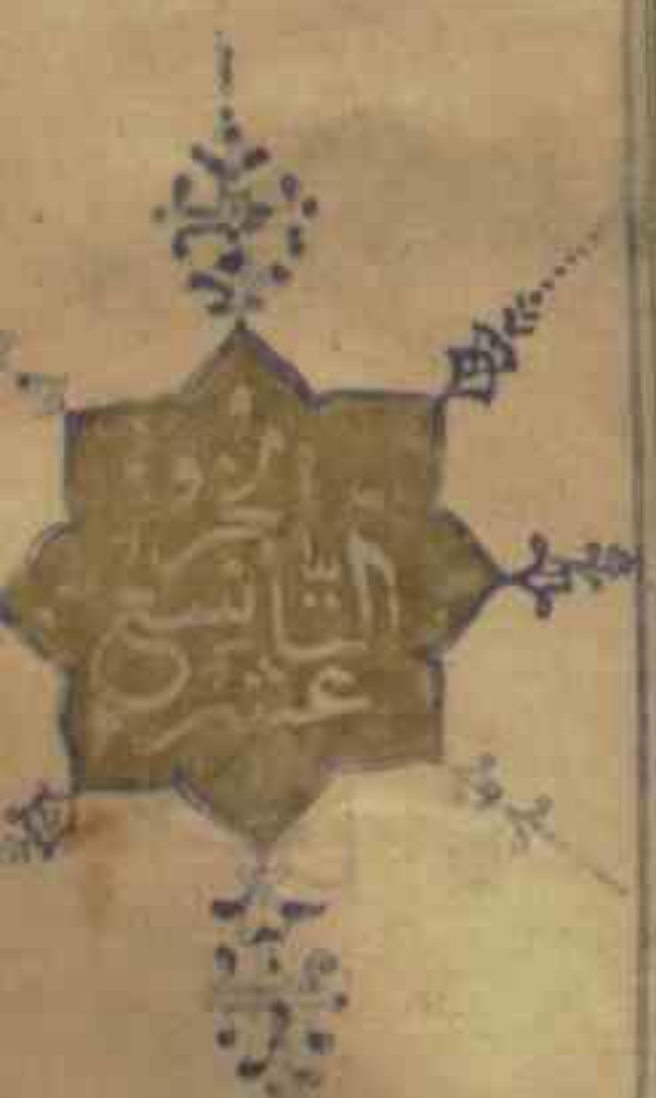 الجزء
التاسع
عشر